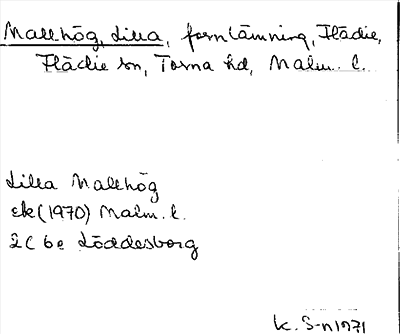 Mallhög, Lilla, fornlämning, Flädie,
Flädie sn, Torna hd, Malm. l.
Lilla Mallhög
ek (1970) Malm. l.
2C 6e Löddesborg
k. S-n 1971